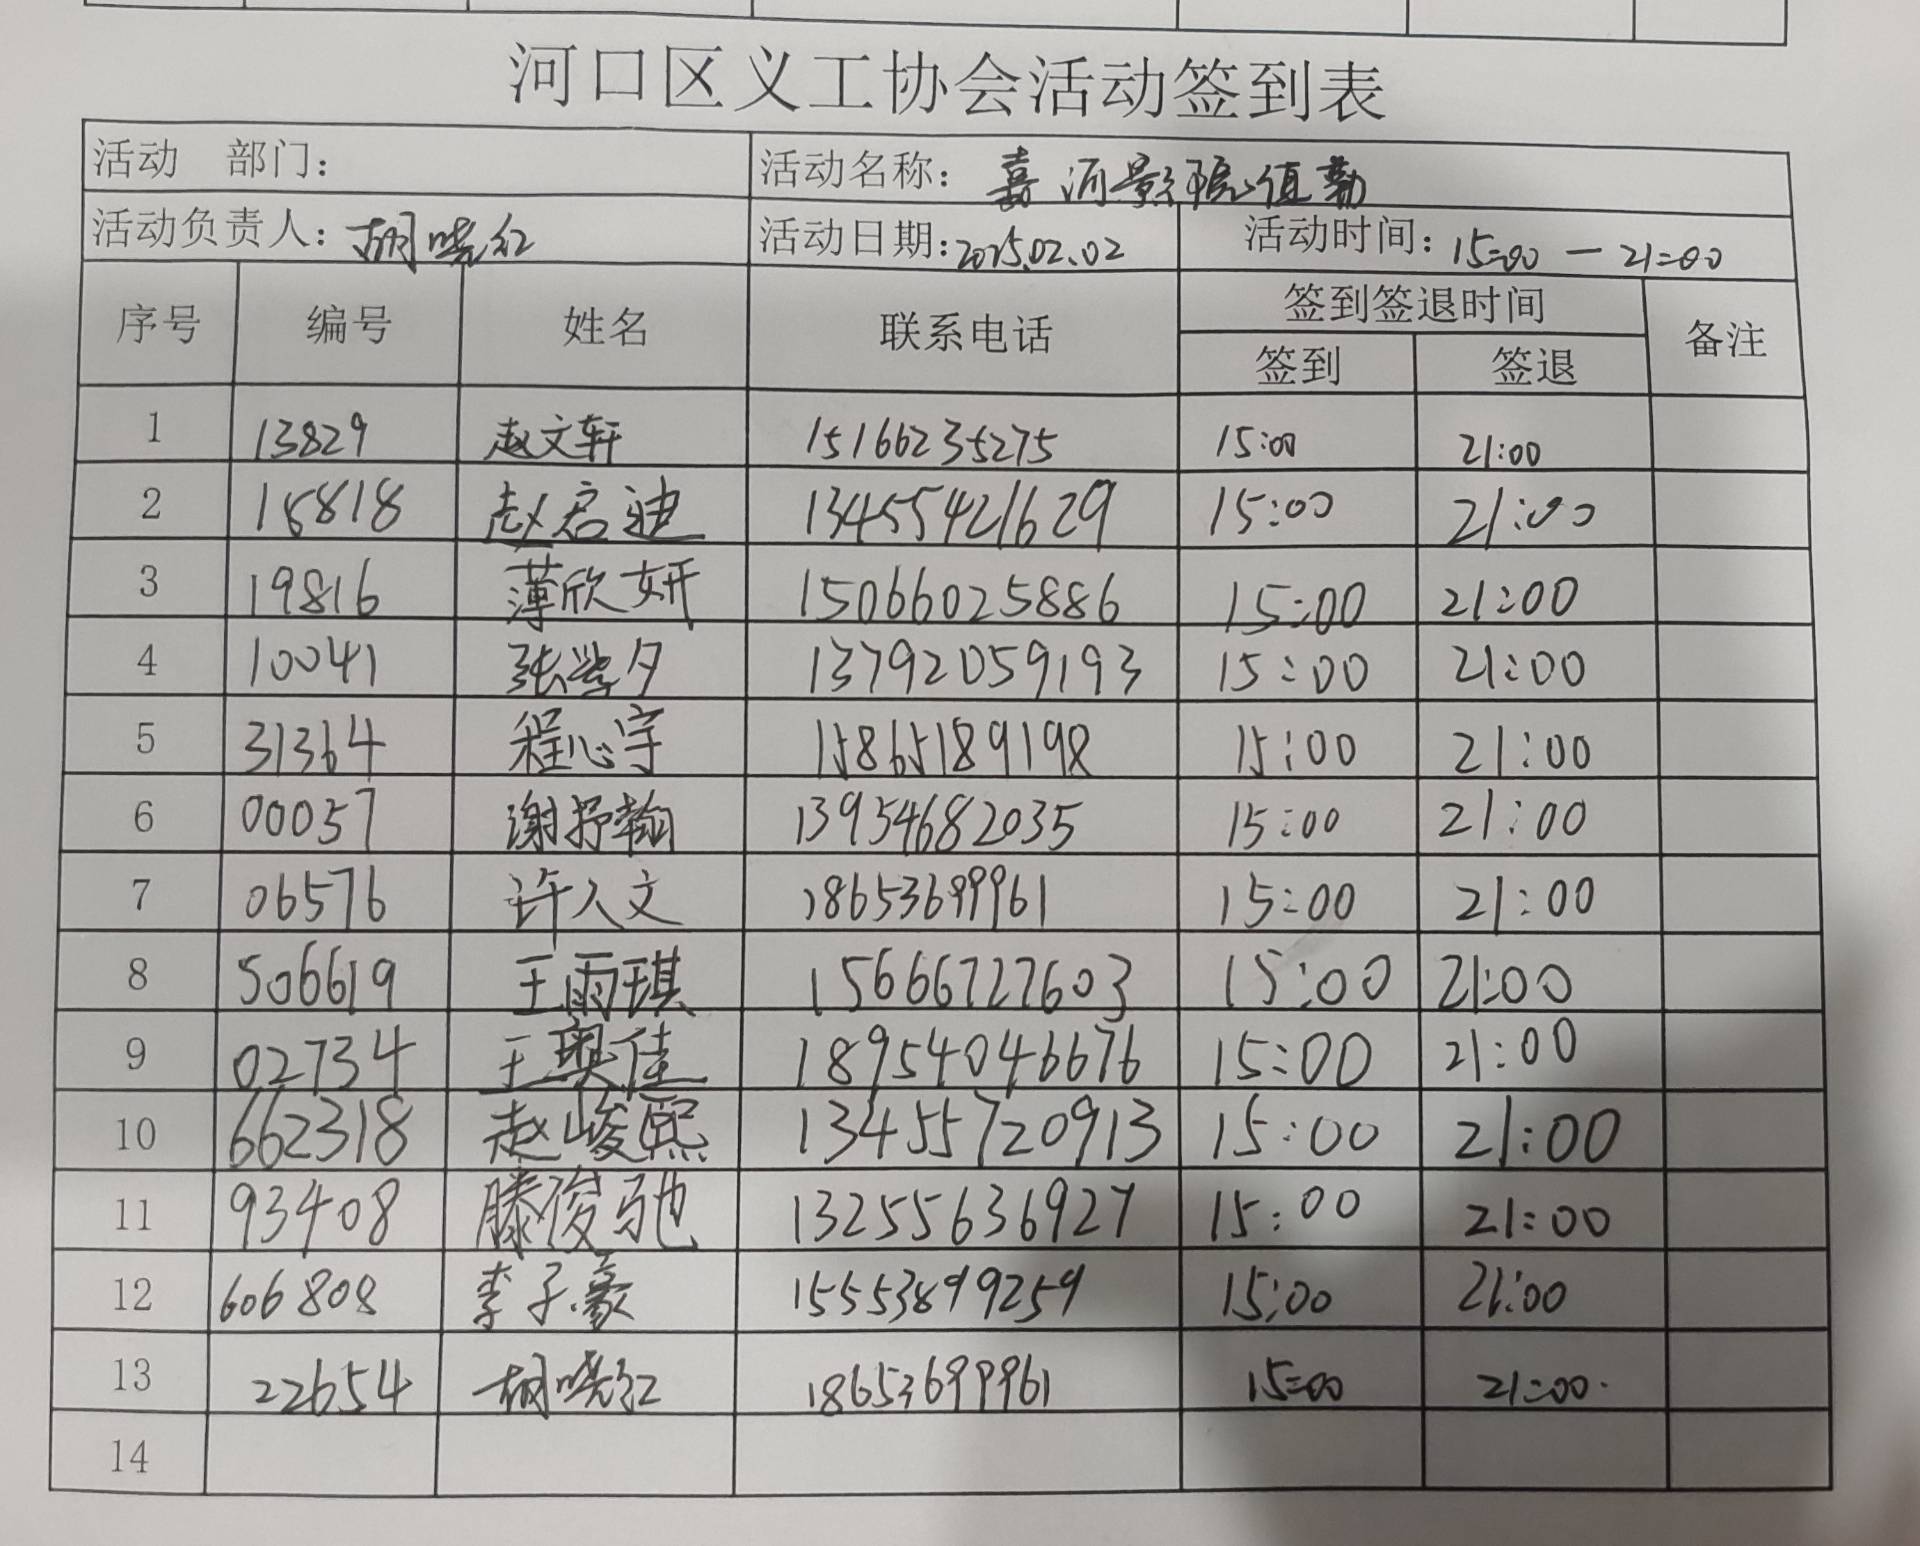 河口区义工协会活动签到表
活动 部门：
活动名称：嘉河影院值勤
活动负责人：胡晓红 活动日期：2025.02.02 活动时间：15:00—21:00
序号 编号 姓名 联系电话 签到签退时间 备注
签到 签退
1 13829 赵文轩 15166235275 15:00 21:00
2 15818 赵启迪 13455421629 15:00 21:00
3 19816 薄欣妍 15066025886 15:00 21:00
4 10041 张 夕 13792059193 15:00 21:00
5 31364 程心宇 15865189198 15:00 21:00
6 00057 谢抒翰 13954682035 15:00 21:00
7 06576 许人文 18653699961 15:00 21:00
8 506619 王雨琪 15666727603 15:00 21:00
9 02734 王奥佳 18954046676 15:00 21:00
10 662318 赵峻熙 13455720913 15:00 21:00
11 93408 滕俊驰 13255636927 15:00 21:00
12 606808 李子豪 15553899259 15:00 21:00
13 22654 胡晓红 18653699961 15:00 21:00.
14